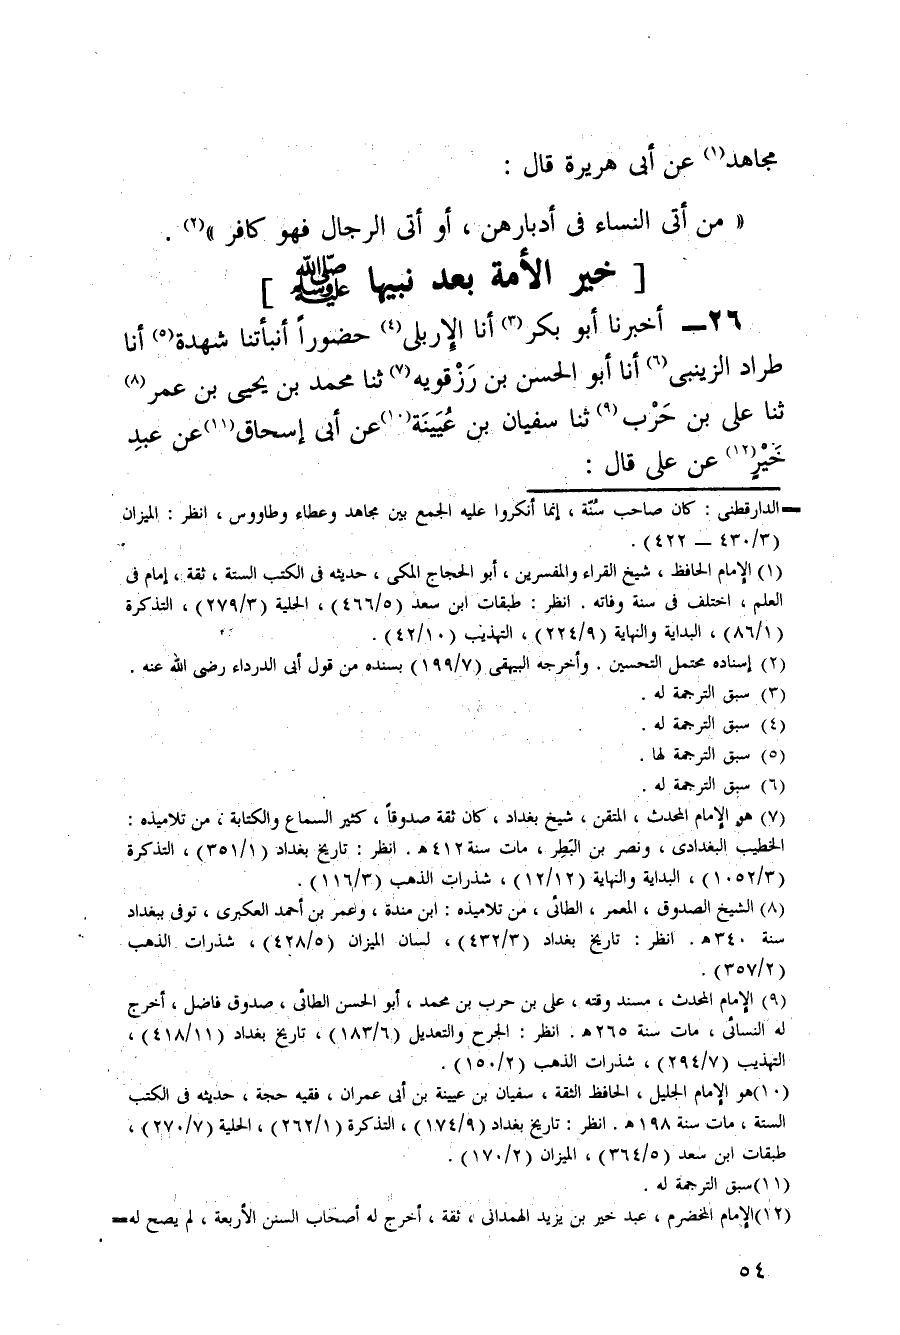 مجاهد(١) عن أبى هريرة قال :
« من أتى النساء فى أدبارهن ، أو أتى الرجال فهو كافر »(٢) .
[ خير الأمة بعد نبيها ﷺ ]
٢٦ــ أخبرنا أبو بكر(٣) أنا الإربلى(٤) حضوراً أنبأتنا شهدة(٥) أنا
طراد الزينبى(٦) أنا أبو الحسن بن رَزْقويه(٧) ثنا محمد بن يحيى بن عمر(٨)
ثنا على بن حَرْب(٩) ثنا سفيان بن عُيَينَة(١٠) عن أبى إسحاق(١١) عن عبدِ
خَيْرٍ(١٢) عن على قال :
ــ الدارقطنى : كان صاحب سُنّة ، إنما أنكروا عليه الجمع بين مجاهد وعطاء وطاووس ، انظر : الميزان
(٤٣٠/٣ ــ ٤٢٢) .
(١) الإمام الحافظ ، شيخ القراء والمفسرين ، أبو الحجاج المكى ، حديثه فى الكتب الستة ، ثقة ، إمام فى
العلم ، اختلف فى سنة وفاته . انظر : طبقات ابن سعد (٤٦٦/٥) ، الحلية (٢٧٩/٣) ، التذكرة
(٨٦/١) ، البداية والنهاية (٢٢٤/٩) ، التهذيب (٤٢/١٠) .
(٢) إسناده محتمل التحسين . وأخرجه البيهقى (١٩٩/٧) بسنده من قول أبى الدرداء رضى الله عنه .
(٣) سبق الترجمة له .
(٤) سبق الترجمة له .
(٥) سبق الترجمة لها .
(٦) سبق الترجمة له .
(٧) هو الإمام المحدث ، المتقن ، شيخ بغداد ، كان ثقة صدوقاً ، كثير السماع والكتابة ، من تلاميذه :
الخطيب البغدادى ، ونصر بن البَطِر ، مات سنة ٤١٢هـ . انظر : تاريخ بغداد (٣٥١/١) ، التذكرة
(١٠٥٢/٣) ، البداية والنهاية (١٢/١٢) ، شذرات الذهب (١١٦/٣) .
(٨) الشيخ الصدوق ، المعمر ، الطائى ، من تلاميذه : ابن مندة ، وعمر بن أحمد العكبرى ، توفى ببغداد
سنة ٣٤٠هـ . انظر : تاريخ بغداد (٤٣٢/٣) ، لسان الميزان (٤٢٨/٥) ، شذرات الذهب
(٣٥٧/٢) .
(٩) الإمام المحدث ، مسند وقته ، على بن حرب بن محمد ، أبو الحسن الطائى ، صدوق فاضل ، أخرج
له النسائى ، مات سنة ٢٦٥هـ . انظر : الجرح والتعديل (١٨٣/٦) ، تاريخ بغداد (٤١٨/١١) ،
التهذيب (٢٩٤/٧) ، شذرات الذهب (١٥٠/٢) .
(١٠)هو الإمام الجليل ، الحافظ الثقة ، سفيان بن عيينة بن أبى عمران ، فقيه حجة ، حديثه فى الكتب
الستة ، مات سنة ١٩٨هـ . انظر : تاريخ بغداد (١٧٤/٩) ، التذكرة (٢٦٢/١) ، الحلية (٢٧٠/٧) ،
طبقات ابن سعد (٣٦٤/٥) ، الميزان (١٧٠/٢) .
(١١)سبق الترجمة له .
(١٢)الإمام المخضرم ، عبد خير بن يزيد الهمدانى ، ثقة ، أخرج له أصحاب السنن الأربعة ، لم يصح له ــ
٥٤